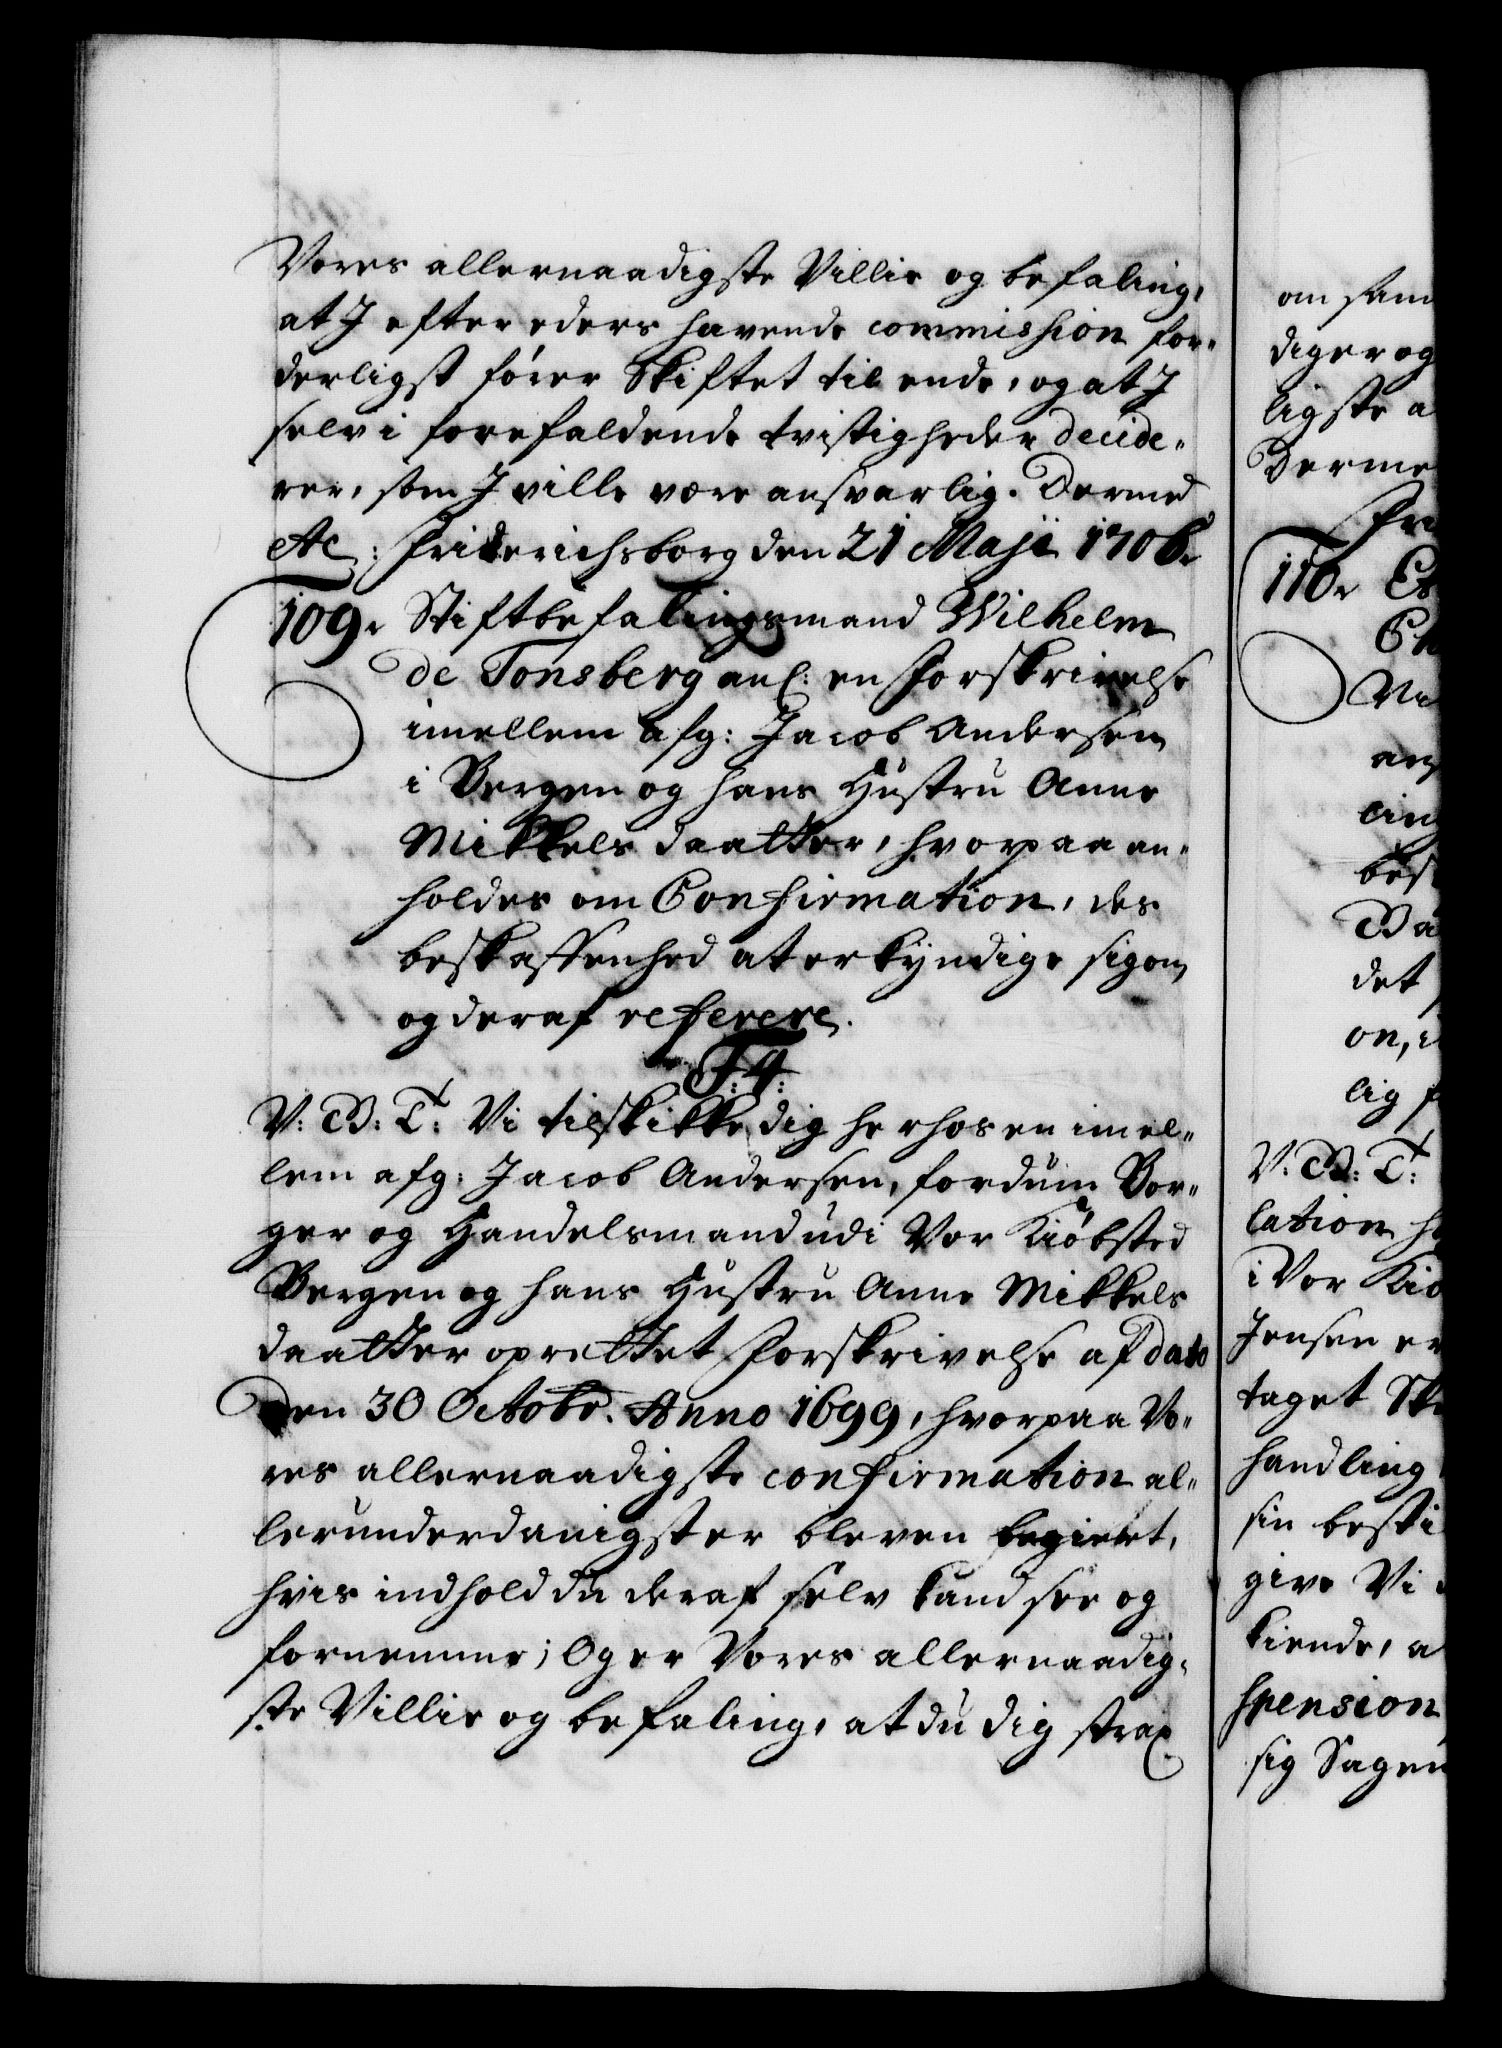 Vores allernaadigste Villie og befaling,
at I efter eders havende commission for-
derligst fører Skiftet til ende, og at I
selv i forefaldende tvistigheder decide-
rer, som I ville være ansvarlig. Dermed
etc: Friderichsborg den 21 Maji 1706.
109. Stiftbefalingsmand Wilhelm
de Tonsberg anl: en Forskrivelse
imellem afg: Jacob Andersen
i Bergen og hans Hustru Anne
Mikkels daatter, hvorpaa an-
holdes om Confirmation, des
beskaffenhed at erkyndige sig om
og deraf referere.
F: 4:
V: B: T: Vi tilskikke dig herhos en imel-
lem afg: Jacob Andersen, fordum Bor-
ger og Handelsmand udi Vor Kiøbsted
Bergen og hans Hustru Anne Mikkels
daatter oprettet Forskrivelse af dato
den 30 Octobr. Anno 1699, hvorpaa Vo-
res allernaadigste confirmation al-
lerunderdanigst er bleven begiert,
hvis indhold du deraf selv kand see og
fornemme; Og er Vores allernaadig-
ste Villie og befaling, at du dig strax
om sam
diger og
ligste a
Derme
Fri
110. Et
Ch
Vi
an
cin
bes
Ba
det
on,
lig f
V: B: T:
lation h
i Vor Kiø
Jensen er
taget Sk
handling
sin besti
give Vi
kiende, a
spension
sig Sagen